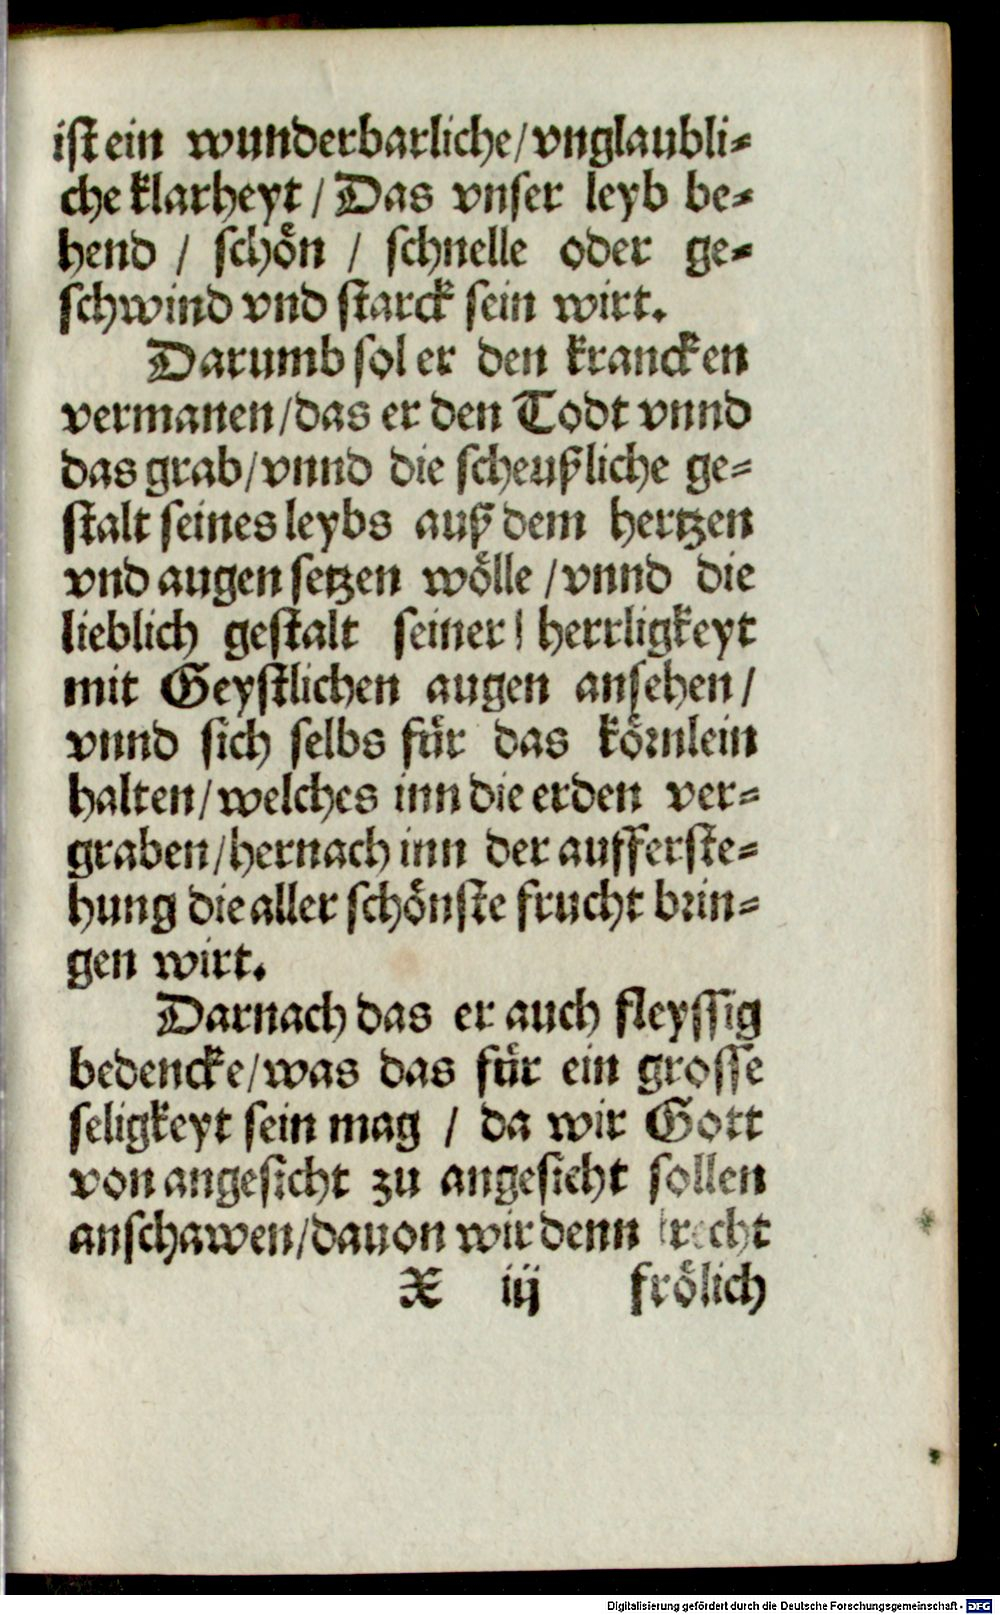 ist ein wunderbarliche/vnglaubli-
che klarheyt / Das vnser leyb be-
hend / schön / schnelle oder ge-
schwind vnd starck sein wirt.
Darumb sol er den krancken
vermanen/das er den Todt vnnd
das grab/vnnd die scheußliche ge-
stalt seines leybs auß dem hertzen
vnd augen setzen wölle /vnnd die
lieblich gestalt seiner herrligkeyt
mit Geystlichen augen ansehen/
vnnd sich selbs für das körnlein
halten/welches inn die erden ver-
graben/hernach inn der aufferste-
hung die aller schönste frucht brin-
gen wirt.
Darnach das er auch fleyssig
bedencke/was das für ein grosse
seligkeyt sein mag / da wir Gott
von angesicht zu angesicht sollen
anschawen/dauon wir denn recht
X iij frölich
Digitalisierung gefördert durch die Deutsche Forschungsgemeinschaft - DFG